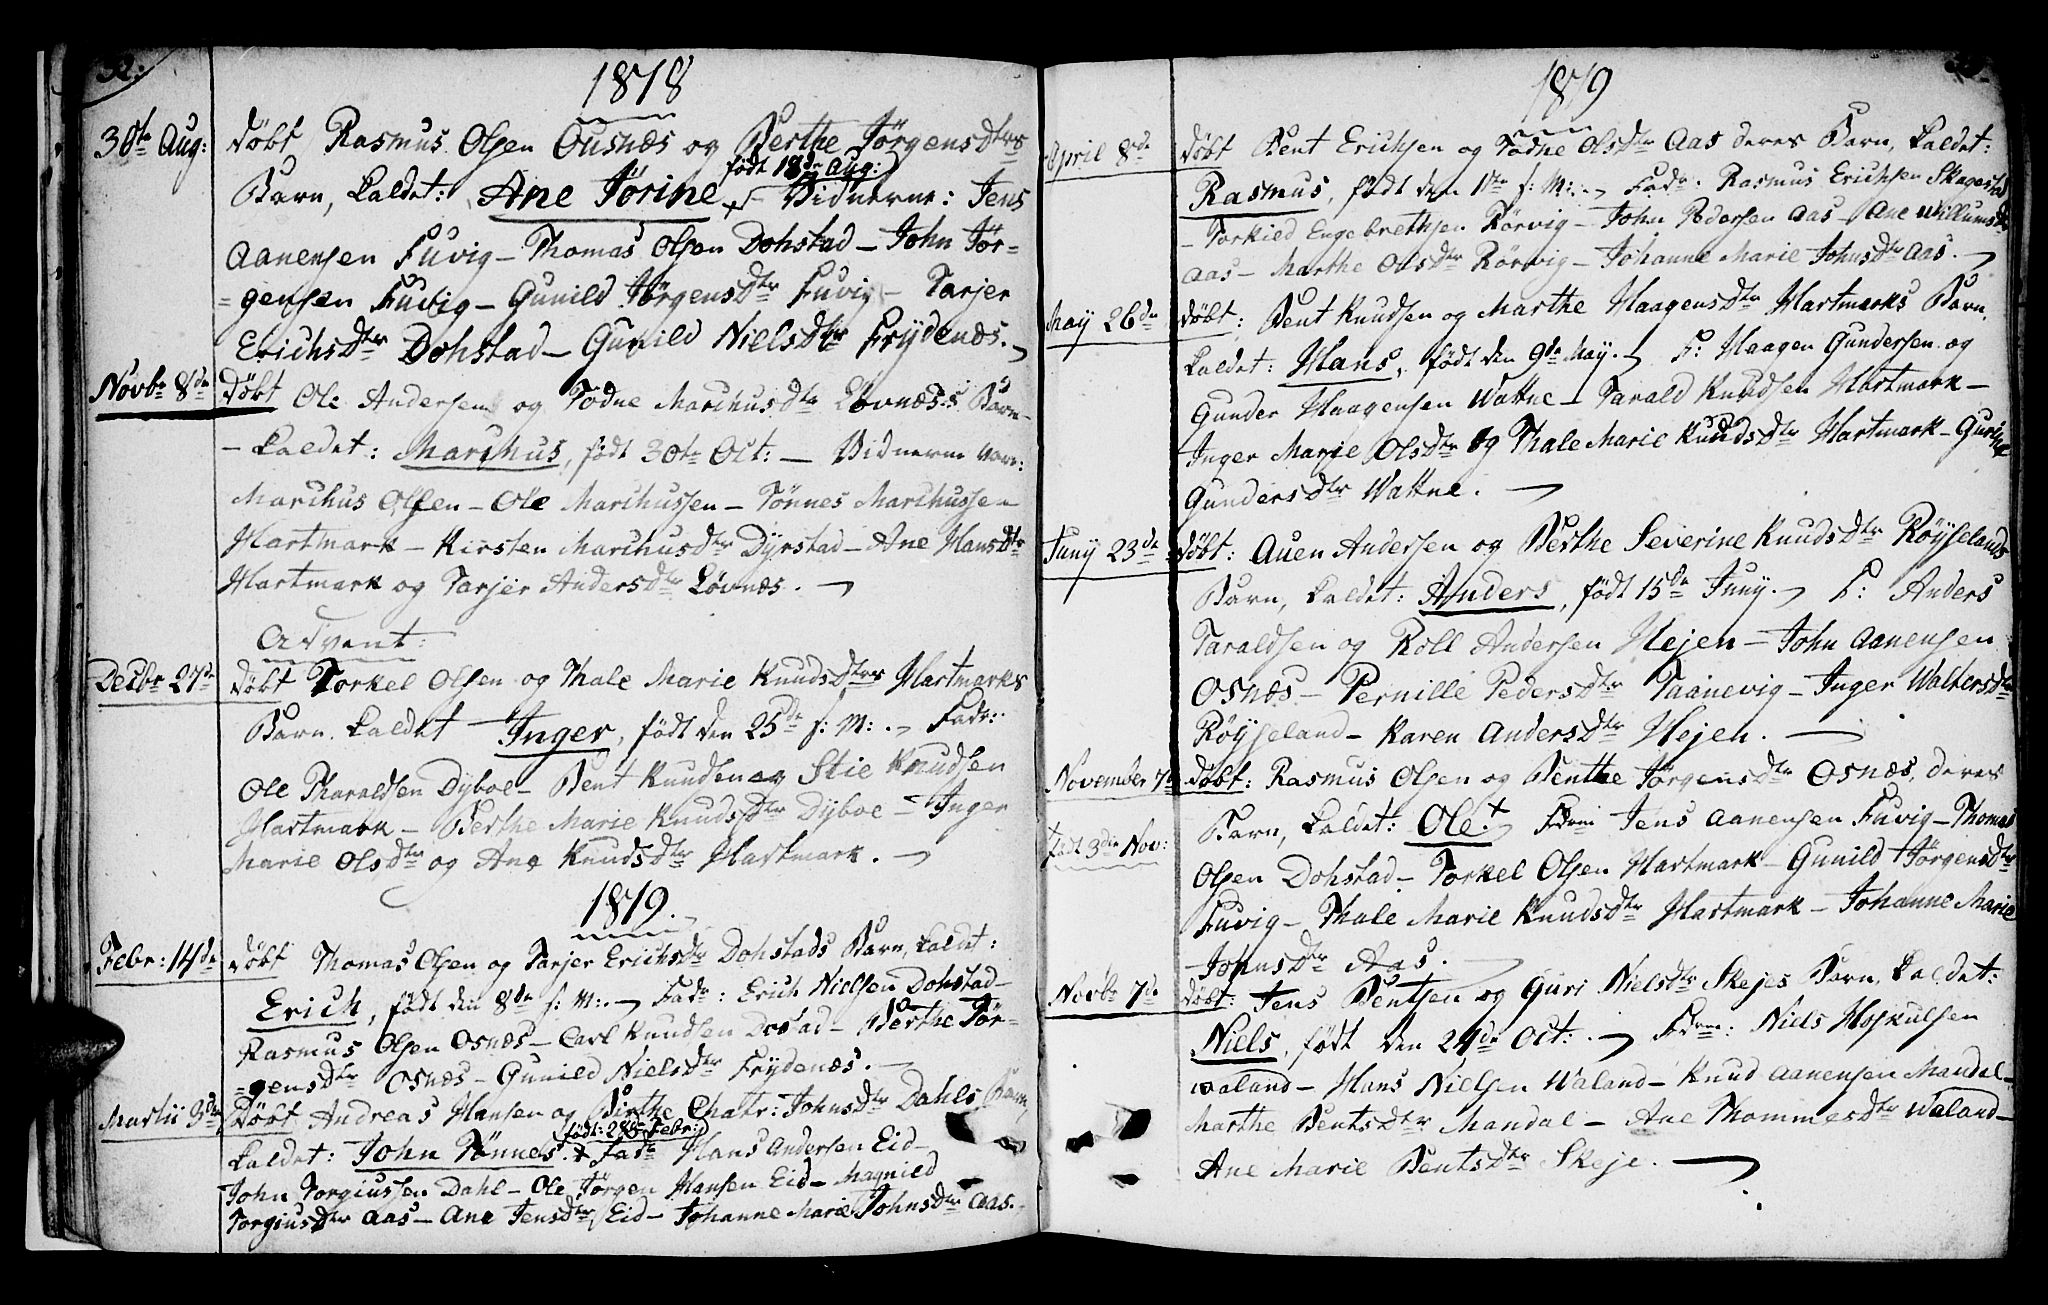 32.
1878
30te Aug: døbt Rasmus Olsen Ousnæs og Berthe Jörgensdtrs
født 18de Aug:
Barn, kaldet: Ane Jörine + Vidnerne: Jens
Aanensen Fuvig – Thomas Olsen Dohstad – John Jör-
=gensen Fuvig – Gunild Jörgensdtr Fuvig – Tarjer
Erichsdtr Dohstad – Gunild Nielsdtr Frydenæs.
Novbr 8de Døbt Ole Andersen og Todne Marchusdtr Løvnæs's Barn –
– kaldet: Marchus, født 30te Oct: – Vidnerne vare:
Marchus Olsen – Ole Marchussen – Tønnes Marchussen
Hartmark – Kirsten Marchusdtr Dyrstad – Ane Hansdtr
Hartmark og Tarjer Andersdtr Løvnæs.
Advent:
Decbr 27de døbt Torkel Olsen og Thale Marie Knudsdtrs Hartmarks
Barn, kaldet Inger, født den 25de f: M: . Fadr:
Ole Tharaldsen Dyboe – Bent Knudsen og Stie Knudsen
Hartmark – Berthe Marie Knudsdtr Dyboe – Inger
Marie Olsdtr og Ane Knudsdtr Hartmark.
1879.
Febr: 14de døbt Thomas Olsen og Tarjer Erichsdtr Dohstads Barn, kaldet:
Erich, født den 8de f: M: . Fadr: Erich Nielsen Dohstad –
Rasmus Olsen Osnæs – Carl Knudsen Dostad – Berthe Jör-
=gensdtr Osnæs – Gunild Nielsdtr Frydenæs.
Martii 3de Døbt Andreas Hansen og Birthe Chatr: Johnsdtr Dahls Barn,
født: 28de Febr:
kaldet: John Tönnes. + Fadr Hans Andersen Eid –
John Torgiussen Dahl – Ole Jörgen Hansen Eid – Magnild
Torgiusdtr Aas – Ane Jensdtr Eid – Johanne Marie Johnsdtr Aas.
1819
April 8de døbt Bent Erichsen og Todne Olsdtr Aas deres Barn, kaldet:
Rasmus, født den 1ste f: M: . Fadr. Rasmus Erichsen Skagestad
– Torkild Engebrethsen Rörvig – John Pedersen Aas – Ane Willumsdtr
Aas – Marthe Olsdtr Rörvig – Johanne Marie Johnsdtr Aas.
May 26de døbt: Bent Knudsen og Marthe Haagensdtr Hartmarks Barn,
kaldet: Hans, født den 9de May. F: Haagen Gundersen og
Gunder Haagensen Wattne – Tarald Knudsen Hartmark –
Inger Marie Olsdtr og Thale Marie Knudsdtr Hartmark – Gurine
Gundersdtr Wattne.
Juny 23de døbt: Auen Andersen og Berthe Severine Knudsdtr Röyselands
Barn, kaldet: Anders, født 15de Juny. F: Anders
Taraldsen og Roll Andersen Hejen – John Aanensen
Osnæs – Pernille Pedersdtr Taanevig – Inger Waltersdtr
Röyseland – Karen Andersdtr Hejen.
November 7de døbt: Rasmus Olsen og Benthe Jörgensdtr Osnæs, deres
Barn, kaldet: Ole. + Fdrne Jens Aanensen Fuvig – Thomas
født 3die Nov:
Olsen Dohstad – Torkel Olsen Hartmark – Gunild Jörgensdtr
Fuvig – Thale Marie Knudsdtr Hartmark – Johanne Marie
Johnsdtr Aas.
Novbr 7de døbt: Jens Bentsen og Guri Nielsdtr Skejes Barn, kaldet:
Niels, født den 24de Oct: . Fdrne: Niels Hoskulsen
Waland – Hans Nielsen Waland – Knud Aanensen Mandal –
Marthe Bentsdtr Mandal – Ane Thommesdtr Waland –
Ane Marie Bentsdtr Skeje.